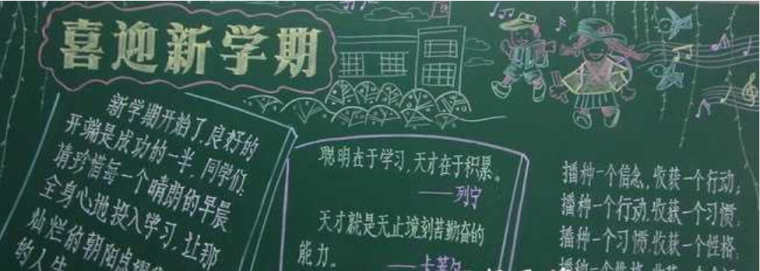 喜迎新学期
新学期开始了,良好的
开端是成功的一半,同学们.
请珍惜每一个晴朗的早晨
全身心地投入学习,让那
灿烂的朝阳点
的人生
聪明在于学习,天才在于积累。
——列宁
天才就是无止境刻苦勤奋的
能力。
——卡莱尔
播种一个信念,收获一个行动;
播种一个行动,收获一个习惯;
播种一个习惯,收获一个性格;
播种一个性格,收获